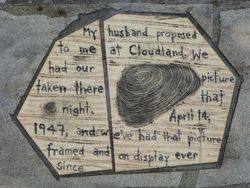 My husband proposed
to me at Cloudland. We
had our picture
taken there that
night, April 14,
1947, and we've had that picture
framed and on display ever
since.